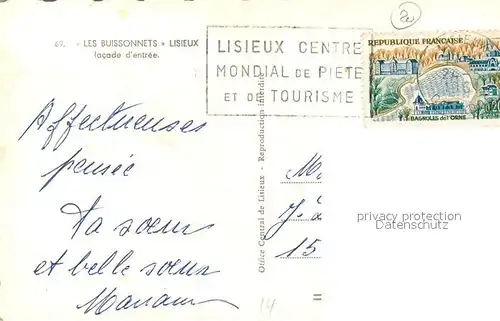 69. - « LES BUISSONNETS » LISIEUX
façade d'entrée.
LISIEUX CENTRE
MONDIAL DE PIETE
ET DE TOURISME
REPUBLIQUE FRANÇAISE
BAGNOLES de l'ORNE
Affectueuses
pensée
Ta soeur
et belle soeur
Office Central de Lisieux - Reproduction interdite
M
J.
15
privacy protection
Datenschutz
14